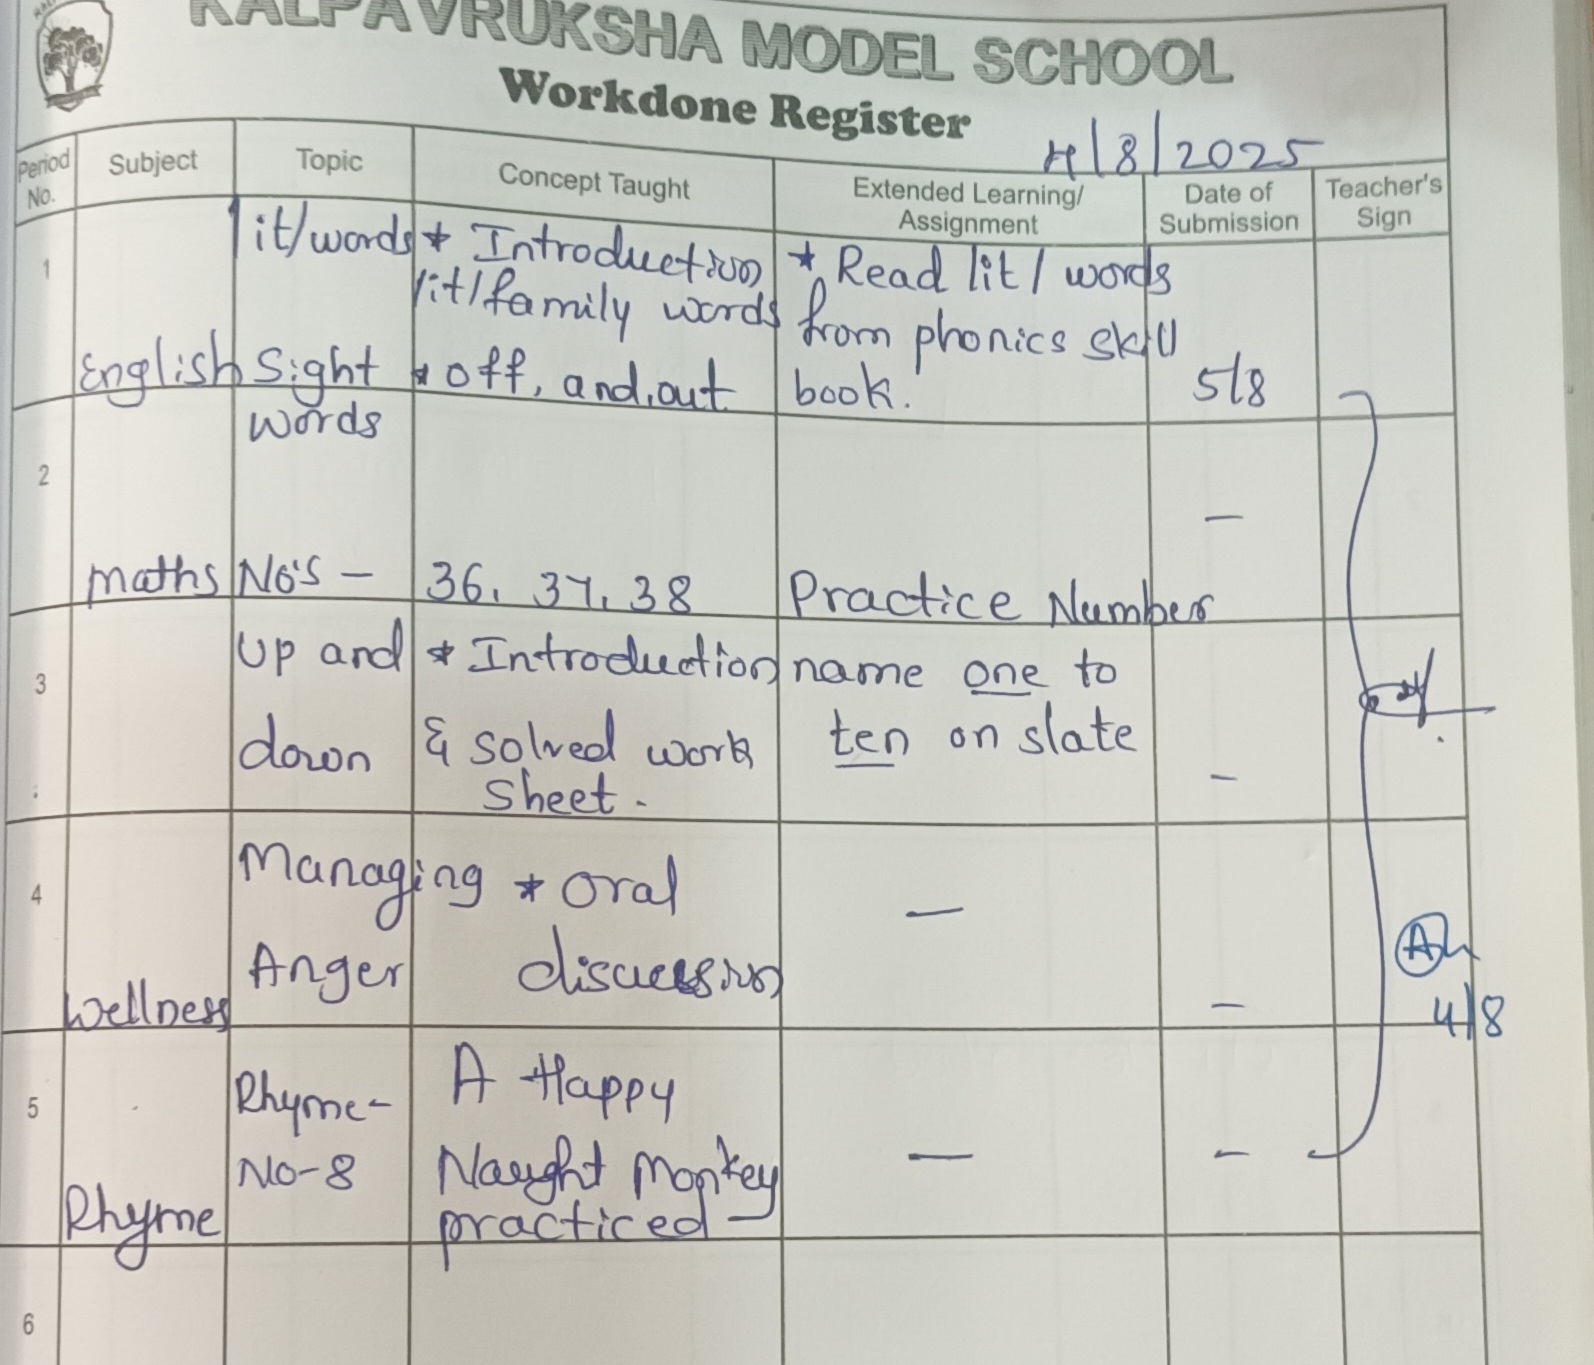 KALPAVRUKSHA MODEL SCHOOL
Workdone Register
4/8/2025
Period No.
Subject
Topic
Concept Taught
Extended Learning/
Assignment
Date of
Submission
Teacher's
Sign
1
lit/words
* Introduction
lit/family words
* Read lit/ words
from phonics skill
book.
English
Sight
words
* off, and, out
5/8
2
—
maths
No's —
36, 37, 38
Practice Number
3
Up and
down
* Introduction
& solved work
sheet.
name one to
ten on slate
—
4
Managing
Anger
* oral
discussion
—
—
Wellness
4/8
5
Rhyme-
No-8
A Happy
Naught Monkey
practiced —
—
—
Rhyme
6